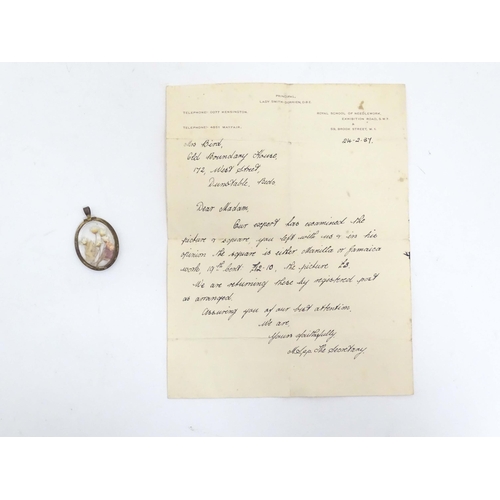 PRINCIPAL:
LADY SMITH-DORRIEN, D.B.E.
TELEPHONE: KENSINGTON.
TELEPHONE: MAYFAIR.
ROYAL SCHOOL OF NEEDLEWORK
EXHIBITION ROAD, S.W.7
&
BROOK STREET, W.1
Mrs Bird,
Old Boundary House,
172, West Street,
Dunstable, Beds
Dear Madam,
Our expert has examined the
picture & square you left with us & in his
opinion the square is either Manilla or Jamaica
work, 19th Cent £2-10, the picture £3.
We are returning these by registered post
as arranged.
Assuring you of our best attention,
We are,
Yours faithfully
The Secretary